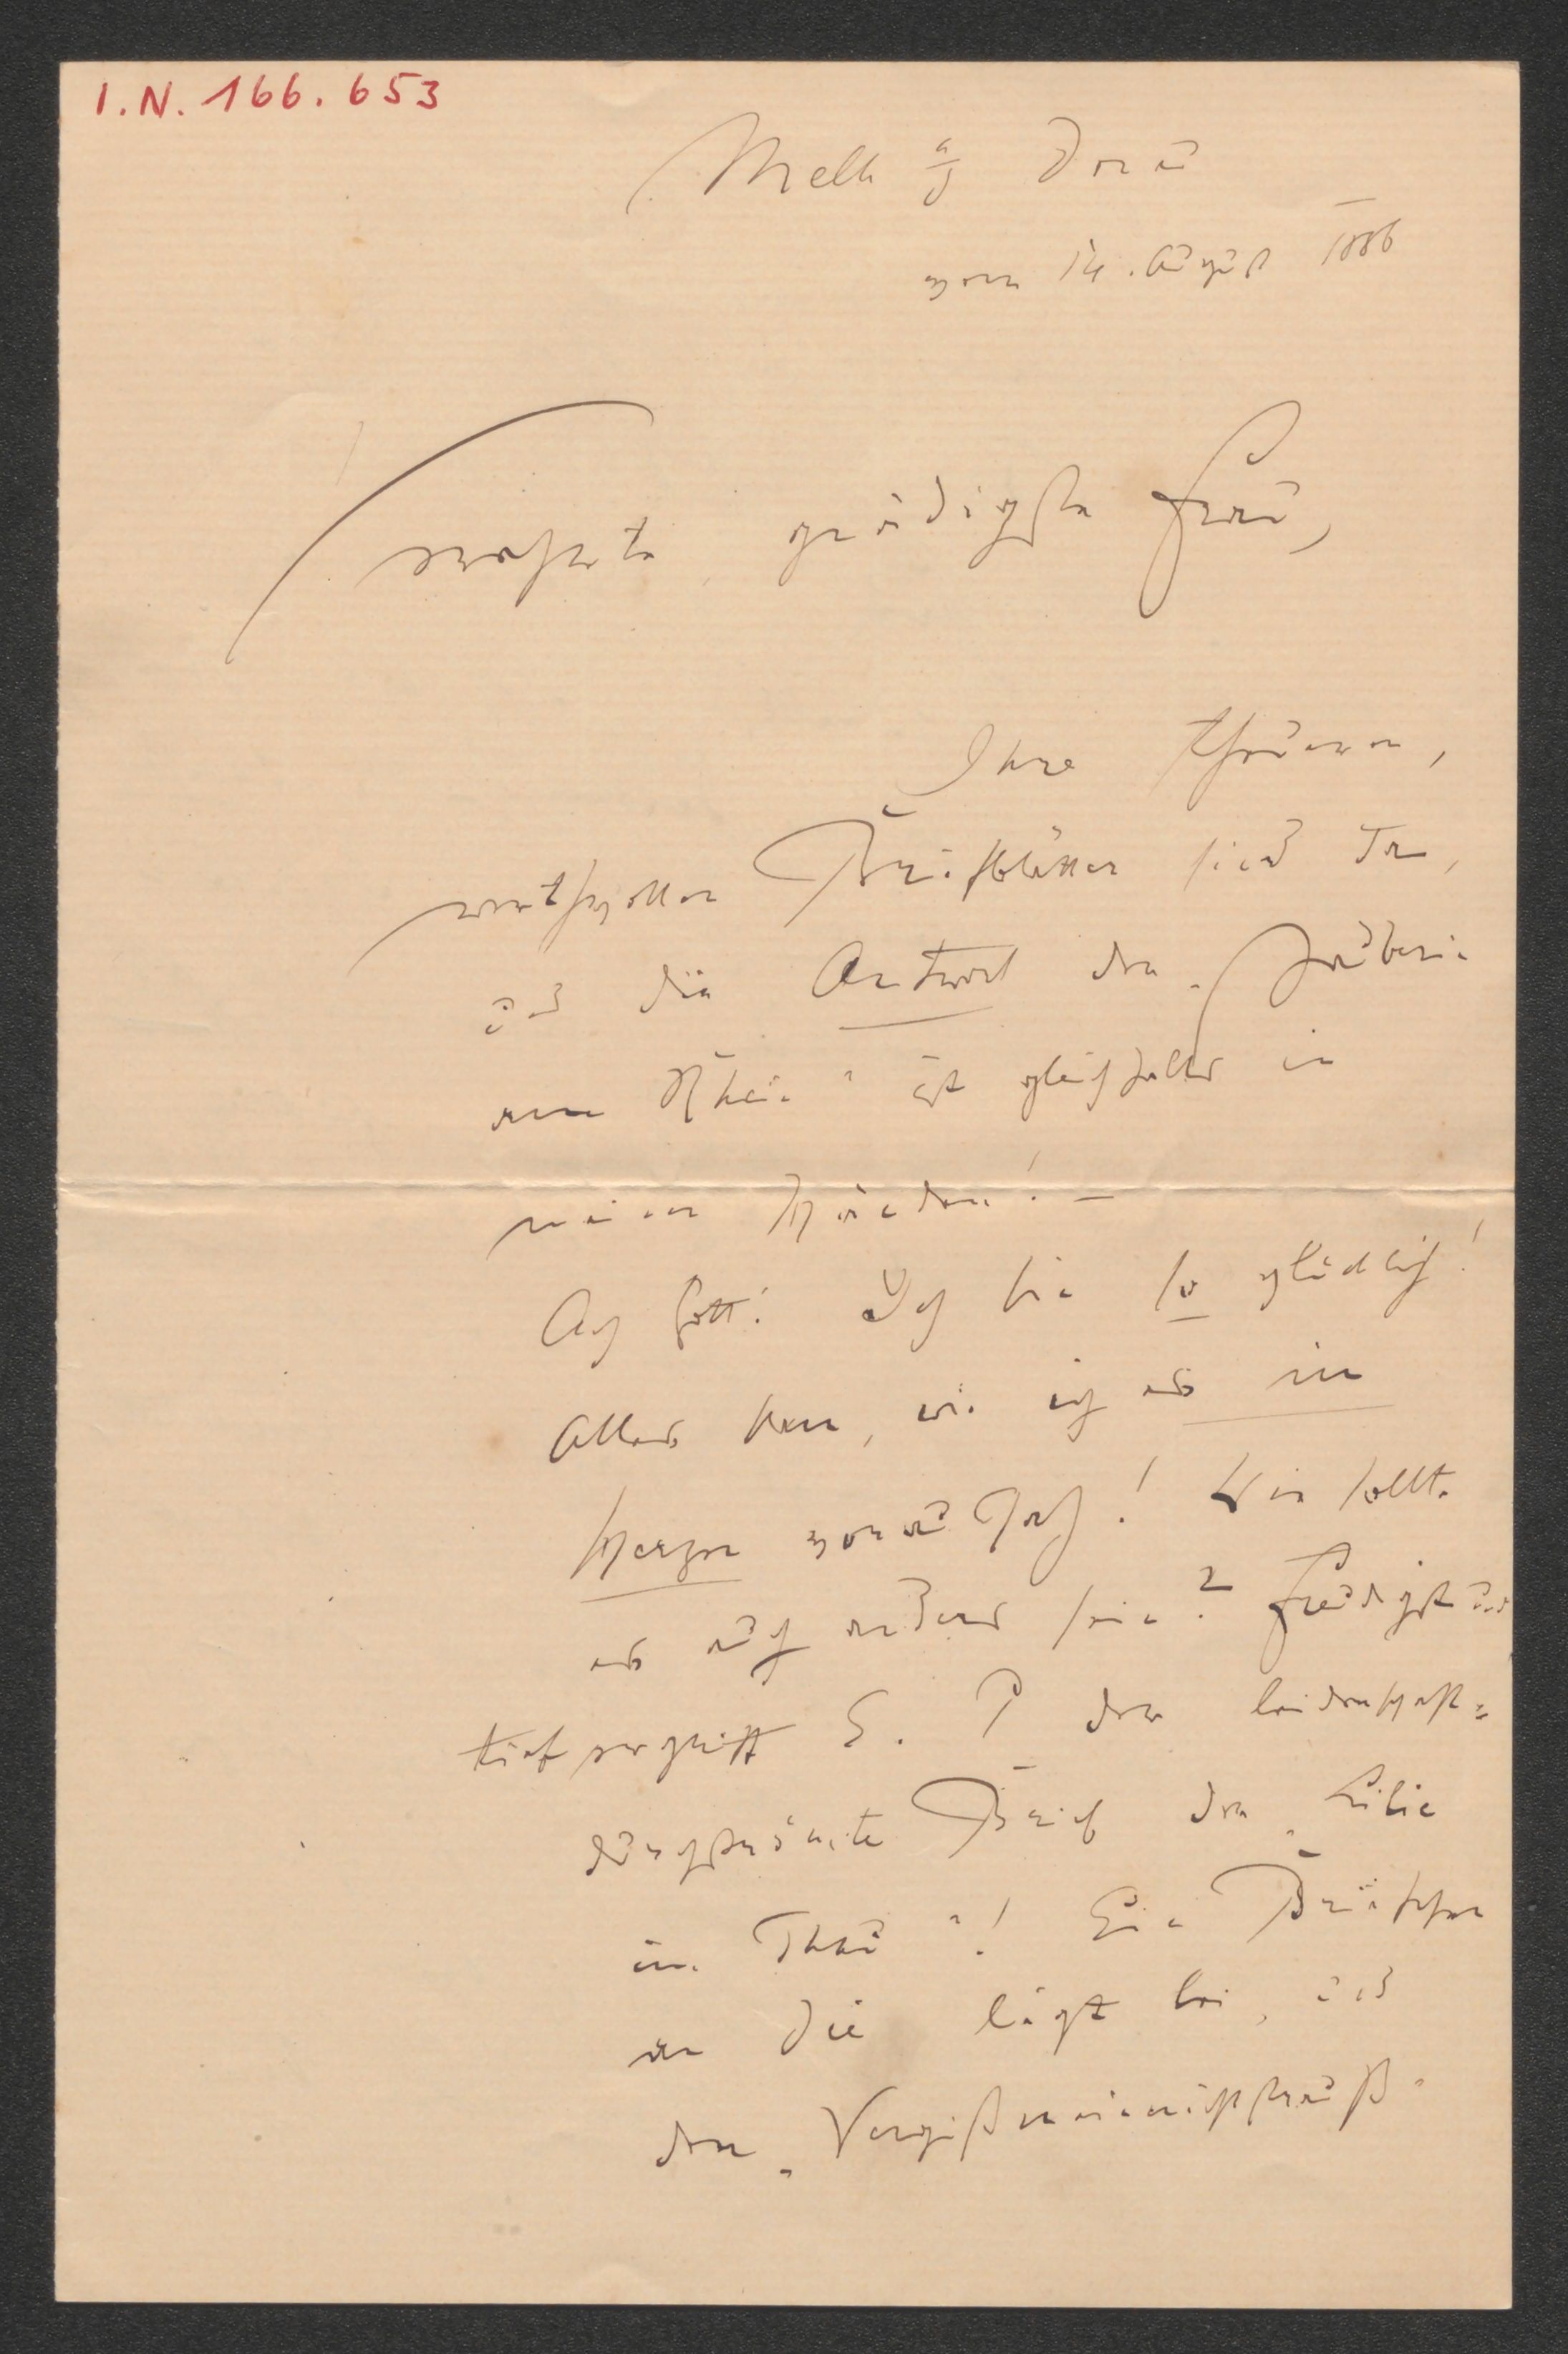 I. N. 166.653
Melk a/d Donau
vom 14. August 1886
verehrte, gnädigste Frau,
Ihre theueren,
werthvollen Briefblätter sind da,
und die Antwort der „Hauberin
am Rhein“ ist gleichfalls in
meinen Händen! –
Ach Gott! Ich bin so glücklich!
Alles kam, wie ich es im
Herzen voraussah! Wie sollte
es auch anders sein? Freudigst und
tief ergriff E. P. der leidenschaft=
durchströmte Brief der „Lilie
im Thau“! Ein Briefchen
an Sie liegt bei, und
den „Vergißmeinnichtstrauß“